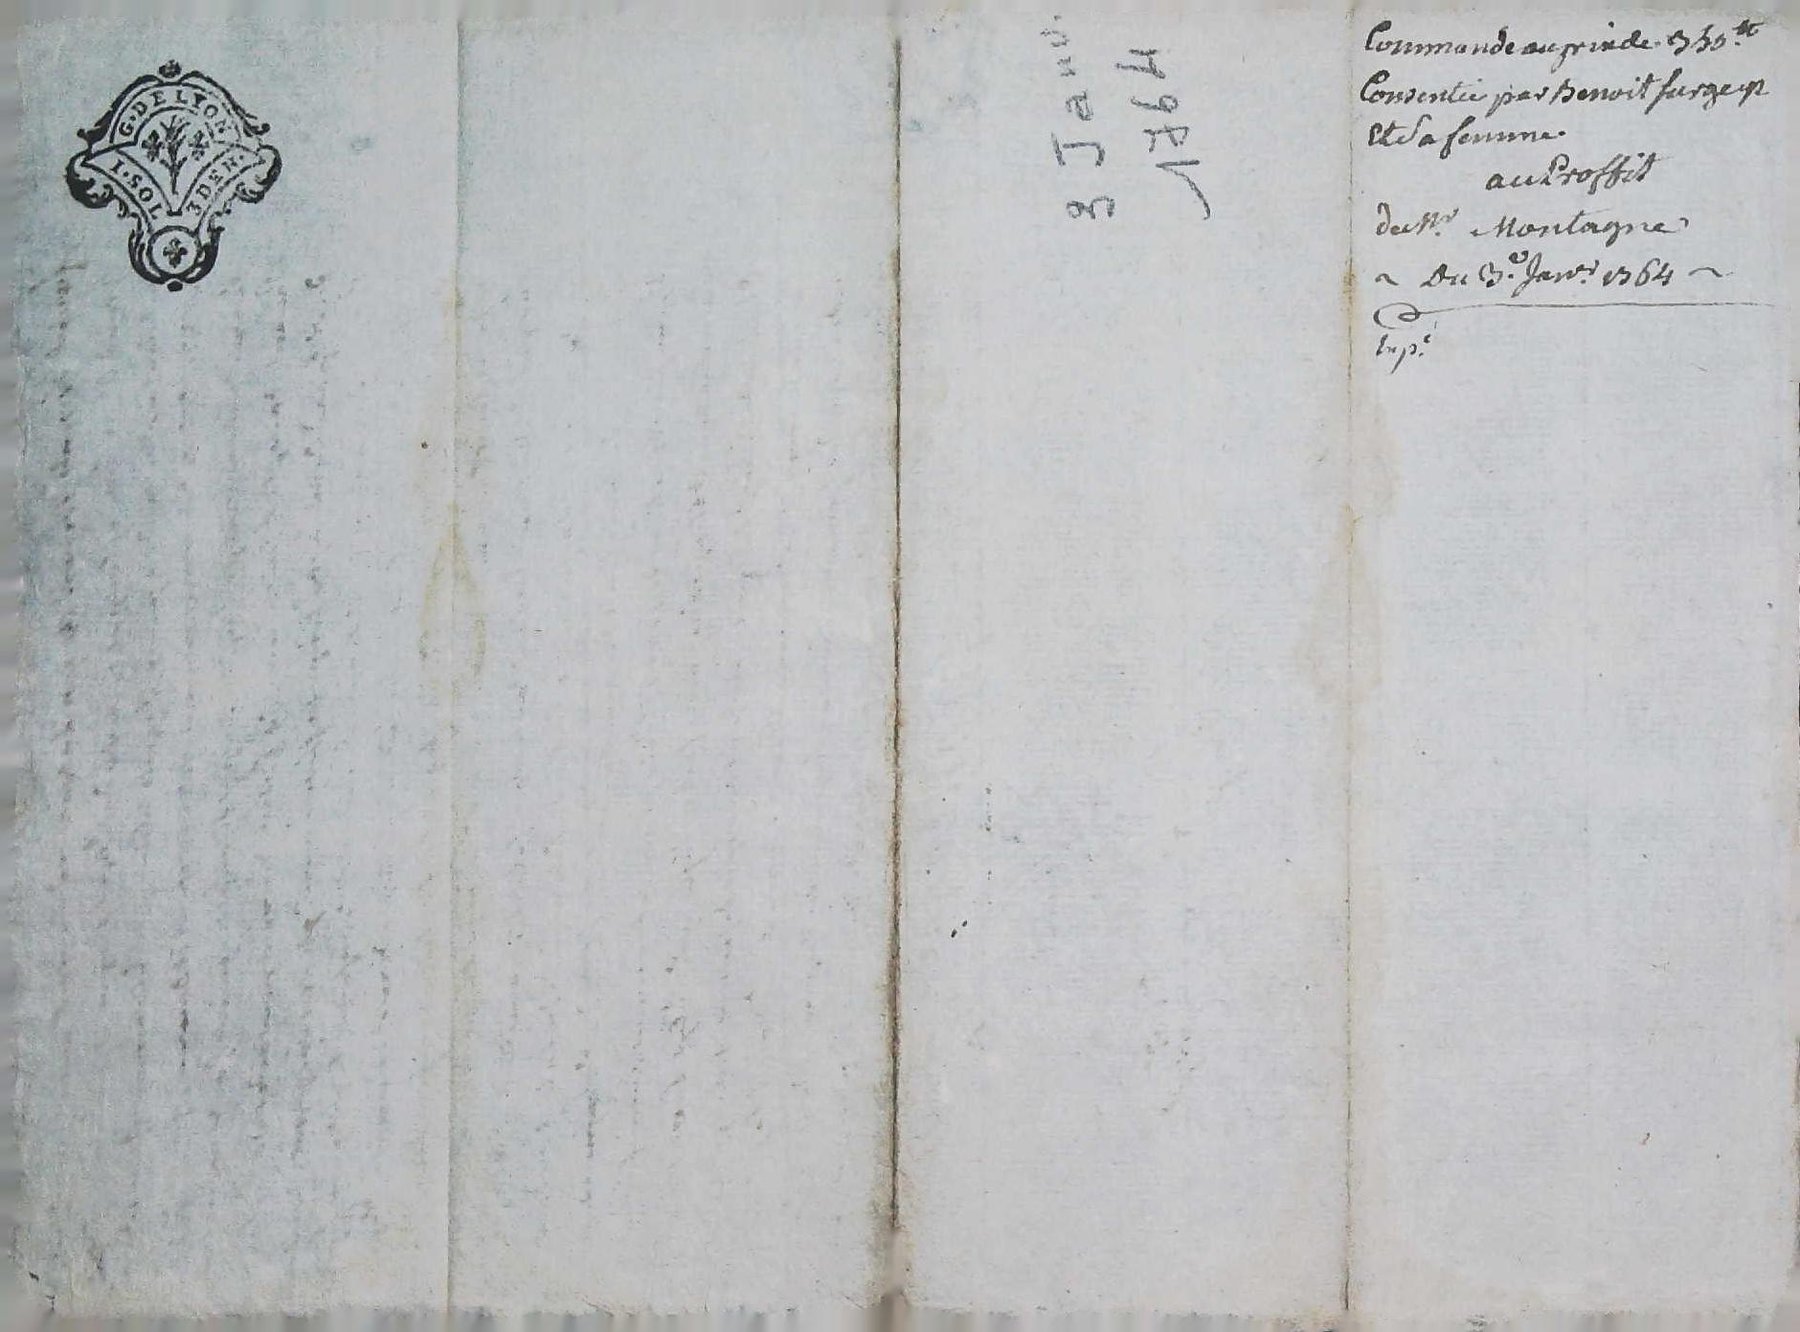 G. DE LYON
I. SOL 3 DEN.
3 Janv.
1764
Commande au prix de
Consentie par Benoit
Et Sa femme.
au Proffit
de Mr. Montagne
~ Du 3.e Janv.r 1764 ~
Exp.é